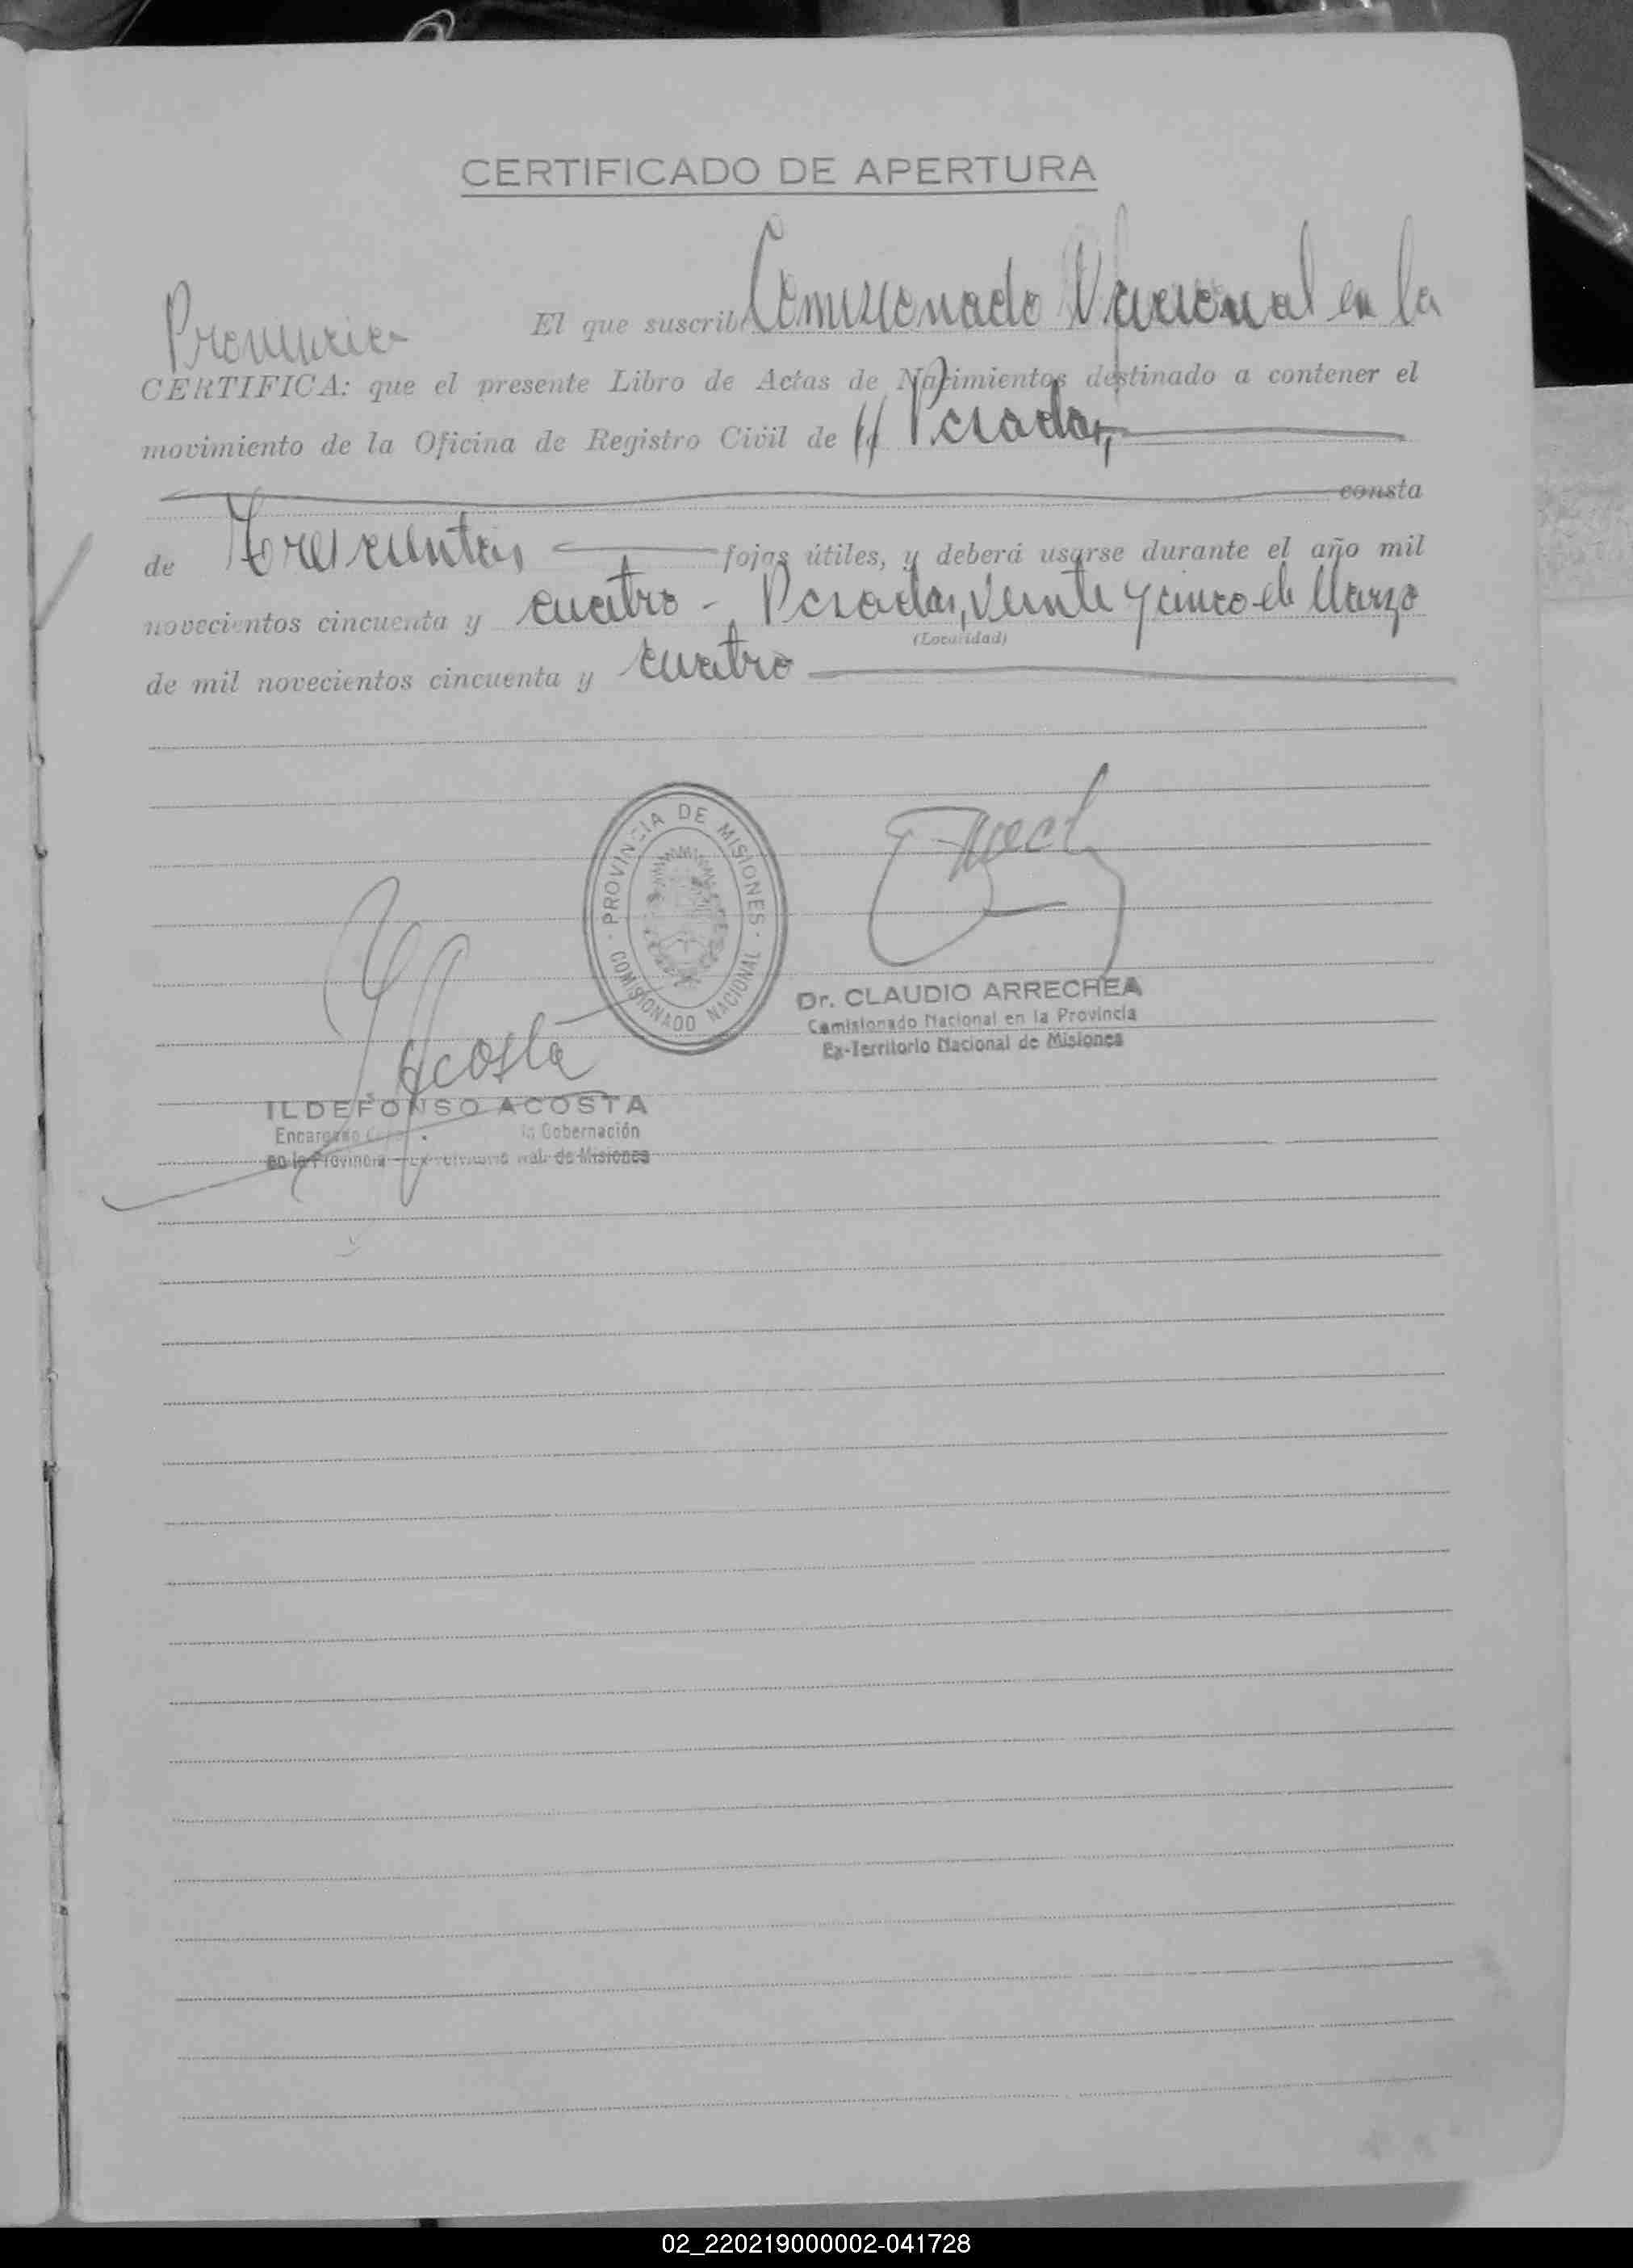 CERTIFICADO DE APERTURA
El que suscribe Comisionado Nacional en la
Provincia
CERTIFICA: que el presente Libro de Actas de Nacimientos destinado a contener el
movimiento de la Oficina de Registro Civil de Posadas,
consta
de Trescientas fojas útiles, y deberá usarse durante el año mil
novecientos cincuenta y cuatro - Posadas, veinte y cinco de Marzo
(Localidad)
de mil novecientos cincuenta y cuatro
PROVINCIA DE MISIONES
COMISIONADO NACIONAL
Dr. CLAUDIO ARRECHEA
Comisionado Nacional en la Provincia
Ex-Territorio Nacional de Misiones
Acosta
ILDEFONSO ACOSTA
Encargado la Gobernación
en la Provincia Ex-Territorio Nal. de Misiones
02_220219000002-041728